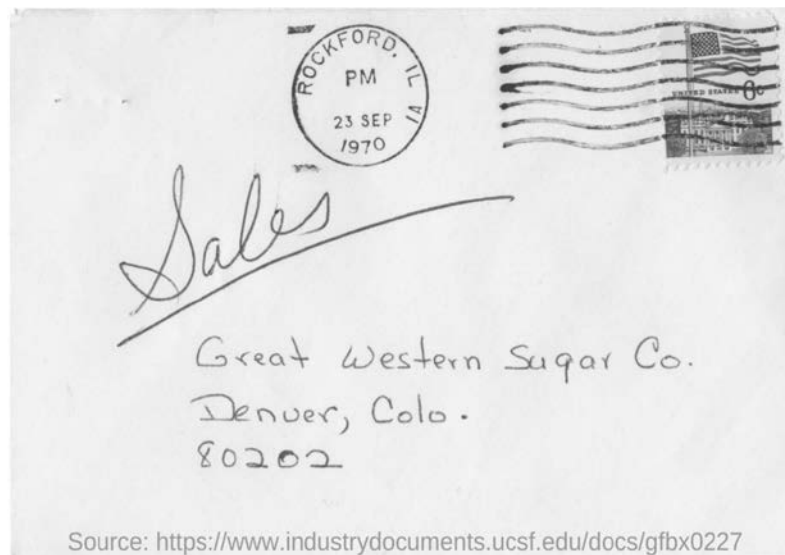 ROCKFORD, IL
PM
23 SEP
1970
UNITED STATES 6c
Sales
Great Western Sugar Co.
Denver, Colo.
80202
Source: https://www.industrydocuments.ucsf.edu/docs/gfbx0227